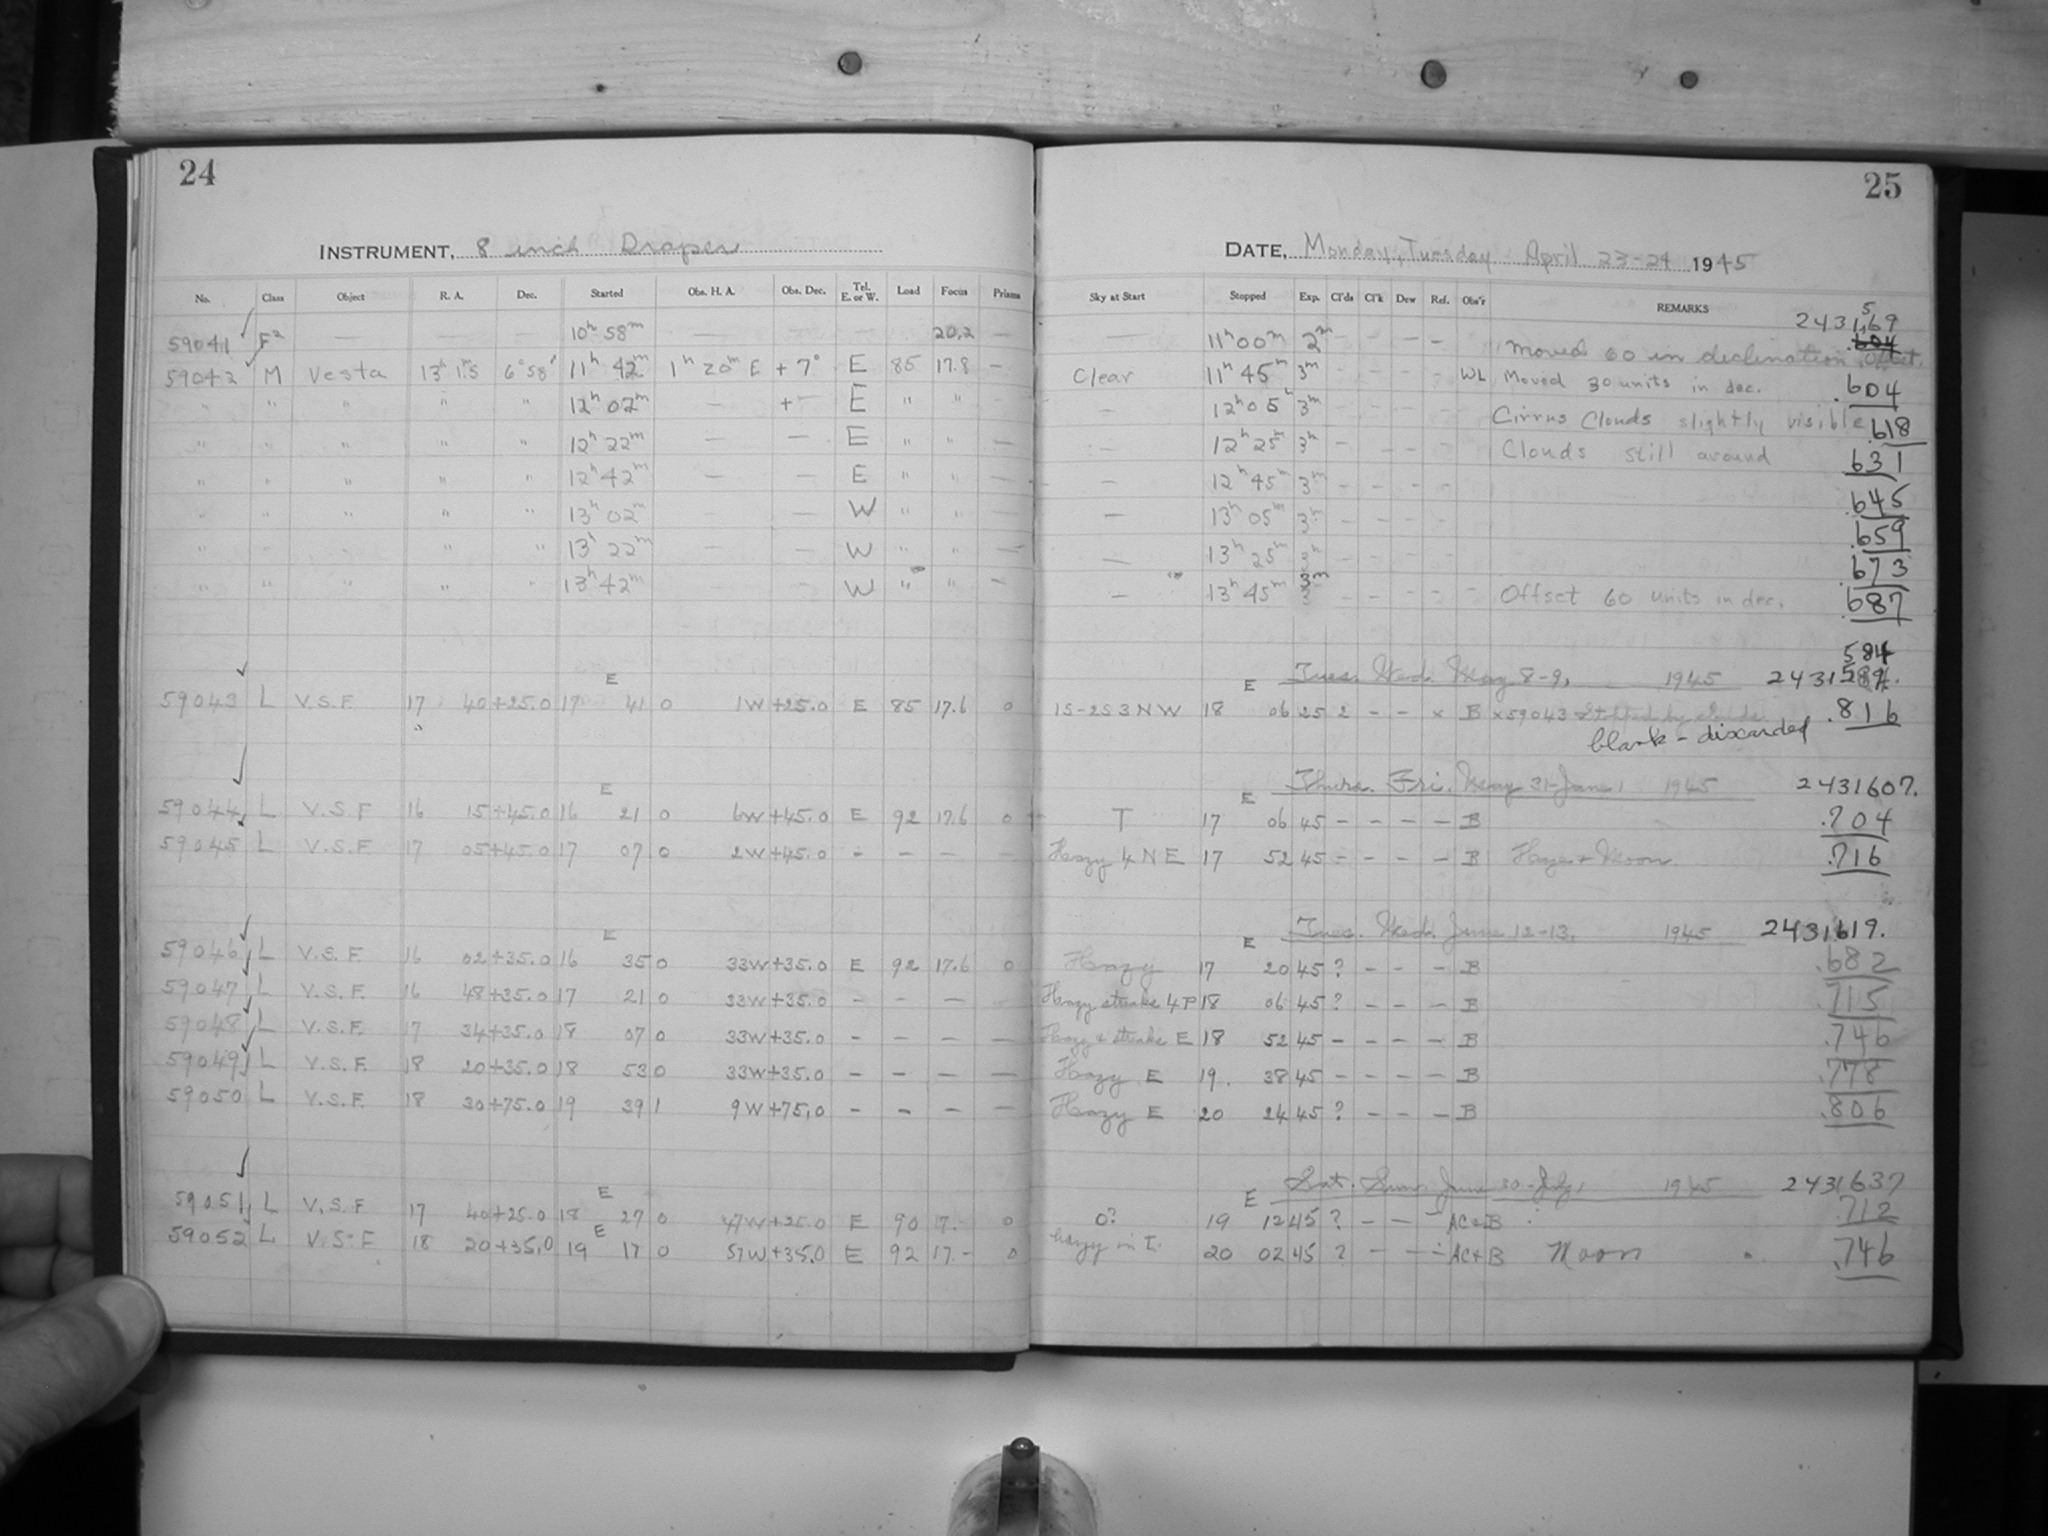 24
INSTRUMENT, 8 inch Draper
No. Class Object R. A. Dec. Started Obs. H. A. Obs. Dec. Tel. E. or W. Load Focus Prisms
59041 F2 — — 10h 58m — — - 20,2 —
59042 M Vesta 13h 1m5 6° 58' 11h 42m 1h 20m E + 7° E 85 17.8 —
" " " " " 12h 02m — + — E " " -
" " " " " 12h 22m — — E " " —
" " " " " 12h 42m — — E " " —
" " " " " 13h 02m — — W " " —
" " " " " 13h 22m — — W " " —
" " " " " 13h 42m — — W " " —
59043 L V.S.F. 17 40 +25.0 17 E 41 0 1W +25.0 E 85 17.6 0
59044 L V.S.F 16 15 +45.0 16 E 21 0 6W +45.0 E 92 17.6 0
59045 L V.S.F 17 05 +45.0 17 07 0 2W +45.0 - - - -
59046 L V.S.F. 16 02 +35.0 16 E 35 0 33W +35.0 E 92 17.6 0
59047 L V.S.F. 16 48 +35.0 17 21 0 33W +35.0 - - — —
59048 L V.S.F. 17 34 +35.0 18 07 0 33W +35.0 - - — —
59049 L V.S.F. 18 20 +35.0 18 53 0 33W +35.0 - - — —
59050 L V.S.F. 18 30 +75.0 19 39 1 9W +75.0 - - — —
59051 L V.S.F 17 40 +25.0 18 E 27 0 47W +25.0 E 90 17.- 0
59052 L V.S.F 18 20 +35.0 19 E 17 0 57W +35.0 E 92 17.- 0
25
DATE, Monday, Tuesday April 23-24 1945
Sky at Start Stopped Exp. Cl'ds Cl'k Dew Ref. Obs'r REMARKS
5
243169
.604
— 11h 00m 2m - - - - Moved 60 in declination Offset.
Clear 11h 45m 3m - - - - WL Moved 30 units in dec. .604
— 12h 05 3m - - - - Cirrus Clouds slightly visible .618
— 12h 25m 3m - - - Clouds still around .631
— 12h 45m 3m - - - - .645
— 13h 05m 3m - - - .659
— 13h 25m 3m - - - - .673
— 13h 45m 3m - - - - - Offset 60 units in dec. .687
584
Tues. Wed. May 8-9, 1945 2431584.
15-25 3 N W 18 E 06 25 2 - - x B x59043 Stopped by clouds .816
blank - discarded
Thurs. Fri. May 31-June 1 1945 2431607.
T 17 E 06 45 - - - - B .704
Hazy 4 N E 17 52 45 - - - - B Haze + Moon. .716
Tues. Wed. June 12-13, 1945 2431619.
Hazy 17 E 20 45 ? - - - B .682
Hazy streaks 4P 18 06 45 ? - - - B .715
Hazy + streaks E 18 52 45 - - - - B .746
Hazy E 19. 38 45 - - - - B .778
Hazy E 20 24 45 ? - - - B .806
Sat. Sun. June 30-July 1 1945 2431637
0? 19 E 12 45 ? - - - AC+B .712
hazy in E. 20 02 45 ? - - - AC+B Moon .746